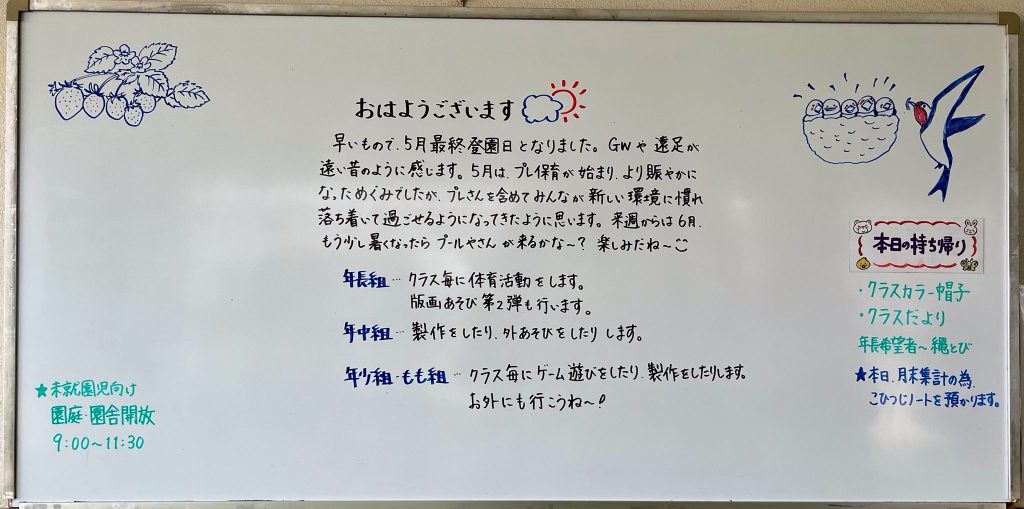 おはようございます
早いもので、5月最終登園日となりました。GWや遠足が
遠い昔のように感じます。5月は、プレ保育が始まり、より賑やかに
なっためぐみでしたが、プレさんを含めてみんなが新しい環境に慣れ
落ち着いて過ごせるようになってきたように思います。来週からは6月、
もう少し暑くなったらプールやさんが来るかな～?楽しみだね～
年長組…クラス毎に体育活動をします。
版画あそび第2弾も行います。
年中組…製作をしたり、外あそびをしたりします。
年少組・もも組…クラス毎にゲーム遊びをしたり、製作をしたりします。
お外にも行こうね～!
★未就園児向け
園庭・園舎開放
9:00～11:30
本日の持ち帰り
・クラスカラー帽子
・クラスだより
年長希望者～縄とび
★本日、月末集計の為、
こひつじノートを預かります。